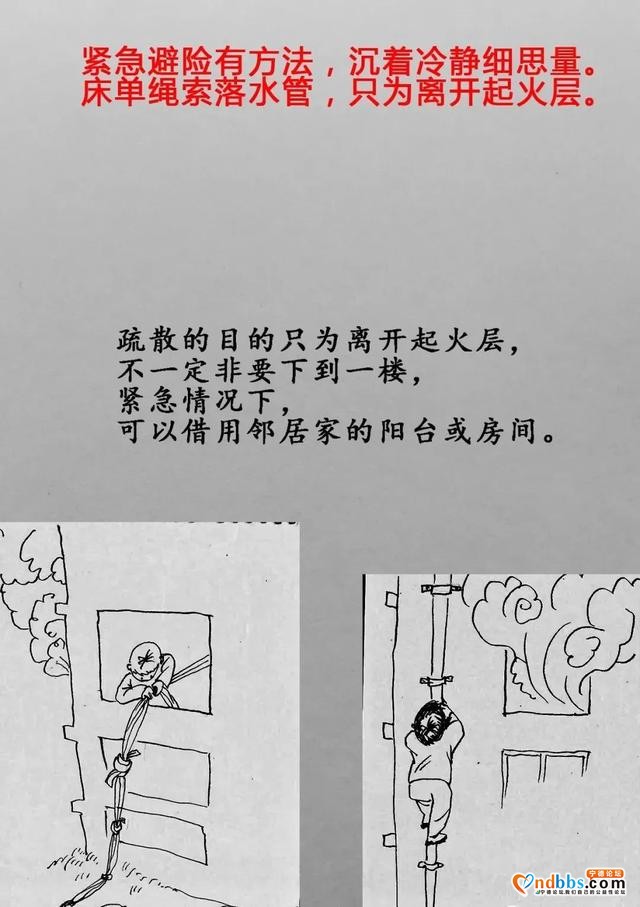 紧急避险有方法，沉着冷静细思量。
床单绳索落水管，只为离开起火层。
疏散的目的只为离开起火层，
不一定非要下到一楼，
紧急情况下，
可以借用邻居家的阳台或房间。
宁德论坛
ndbbs.com